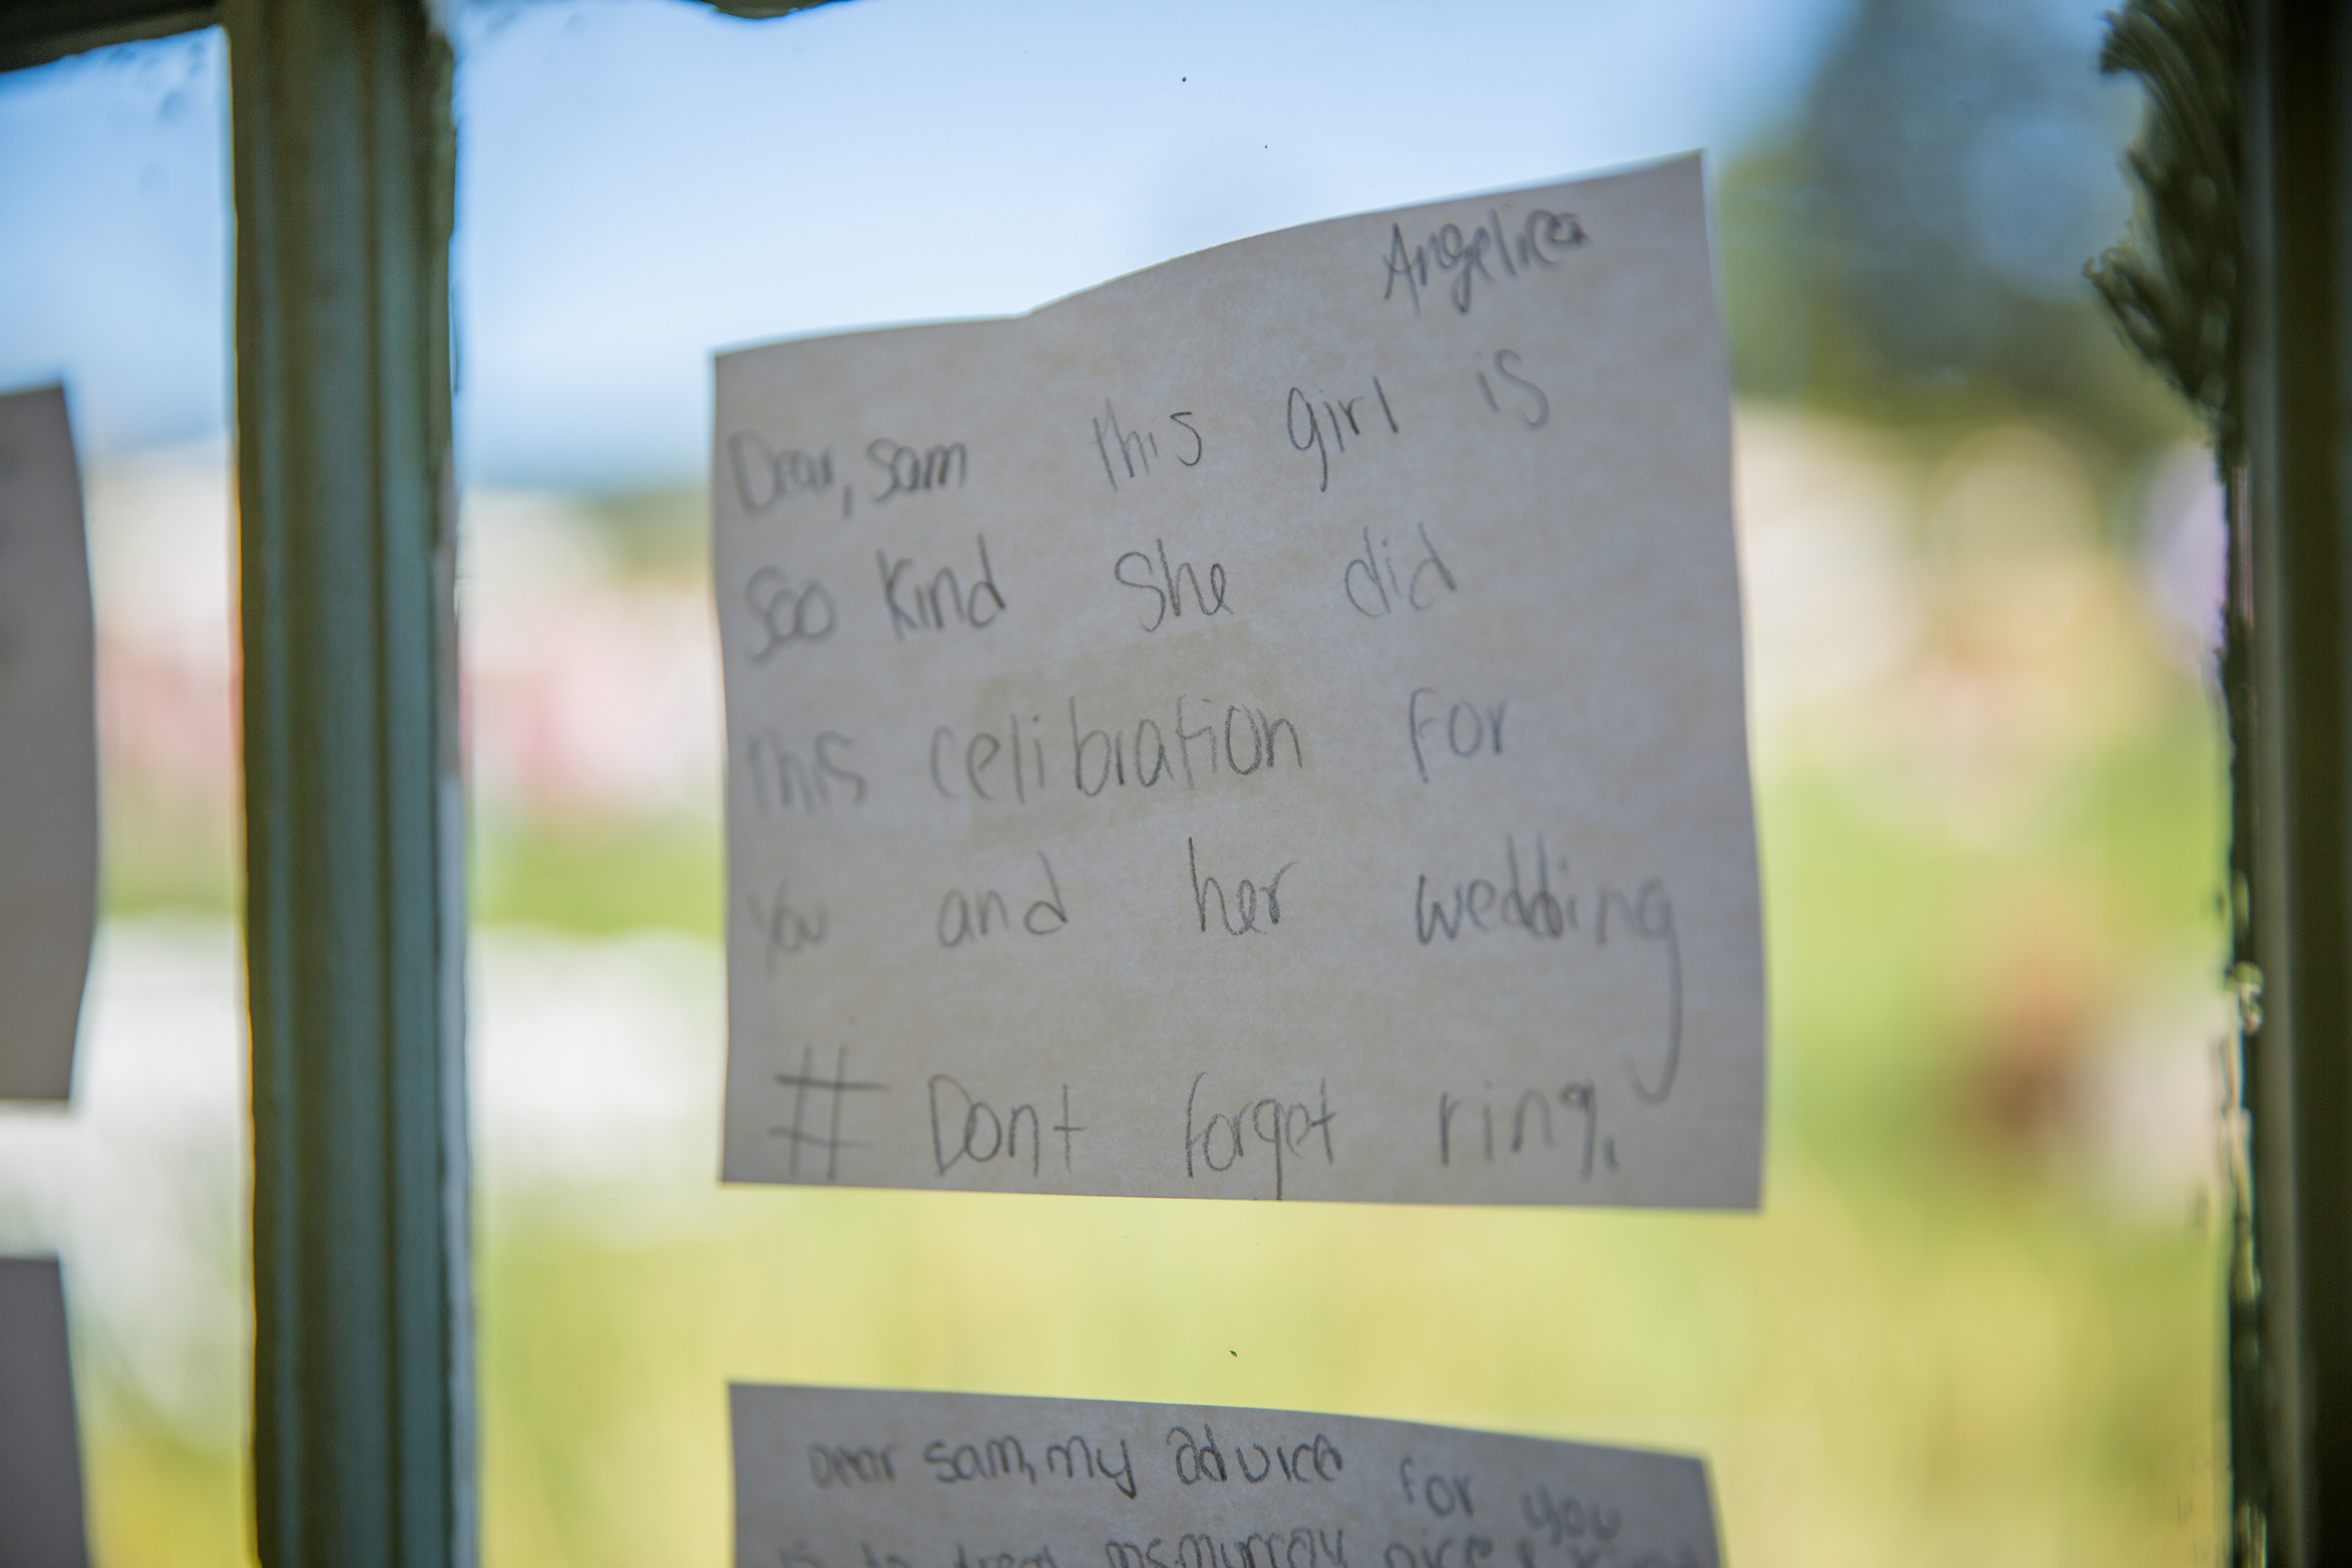 Angelica
Dear, Sam this girl is
Soo Kind She did
this celibration for
you and her wedding
# Dont forget ring.
Dear Sam, my advice for you
is to treat ms.murray nice & kind